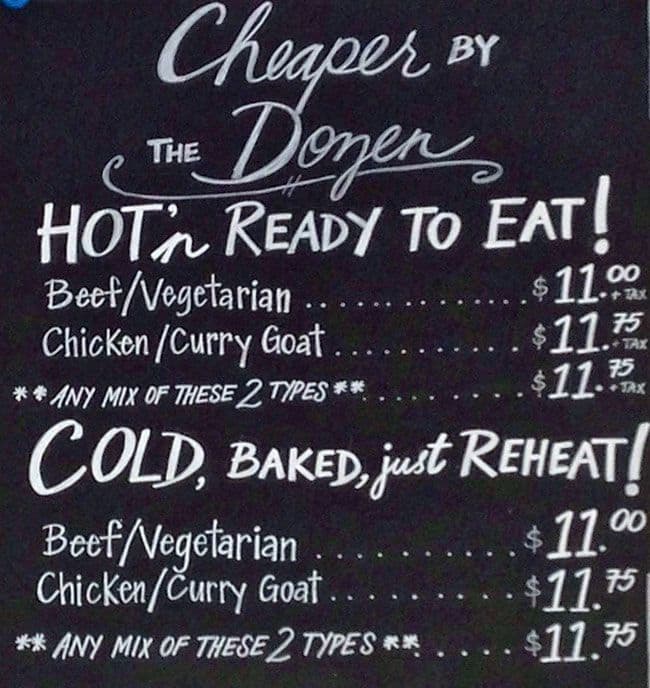 Cheaper BY
THE Dozen
HOT'n READY TO EAT!
Beef/Vegetarian .............. $11.00 + TAX
Chicken/Curry Goat ........... $11.75 + TAX
** ANY MIX OF THESE 2 TYPES ** ......... $11.75 + TAX
COLD, BAKED, just REHEAT!
Beef/Vegetarian .......... $11.00
Chicken/Curry Goat .......... $11.75
** ANY MIX OF THESE 2 TYPES ** ..... $11.75